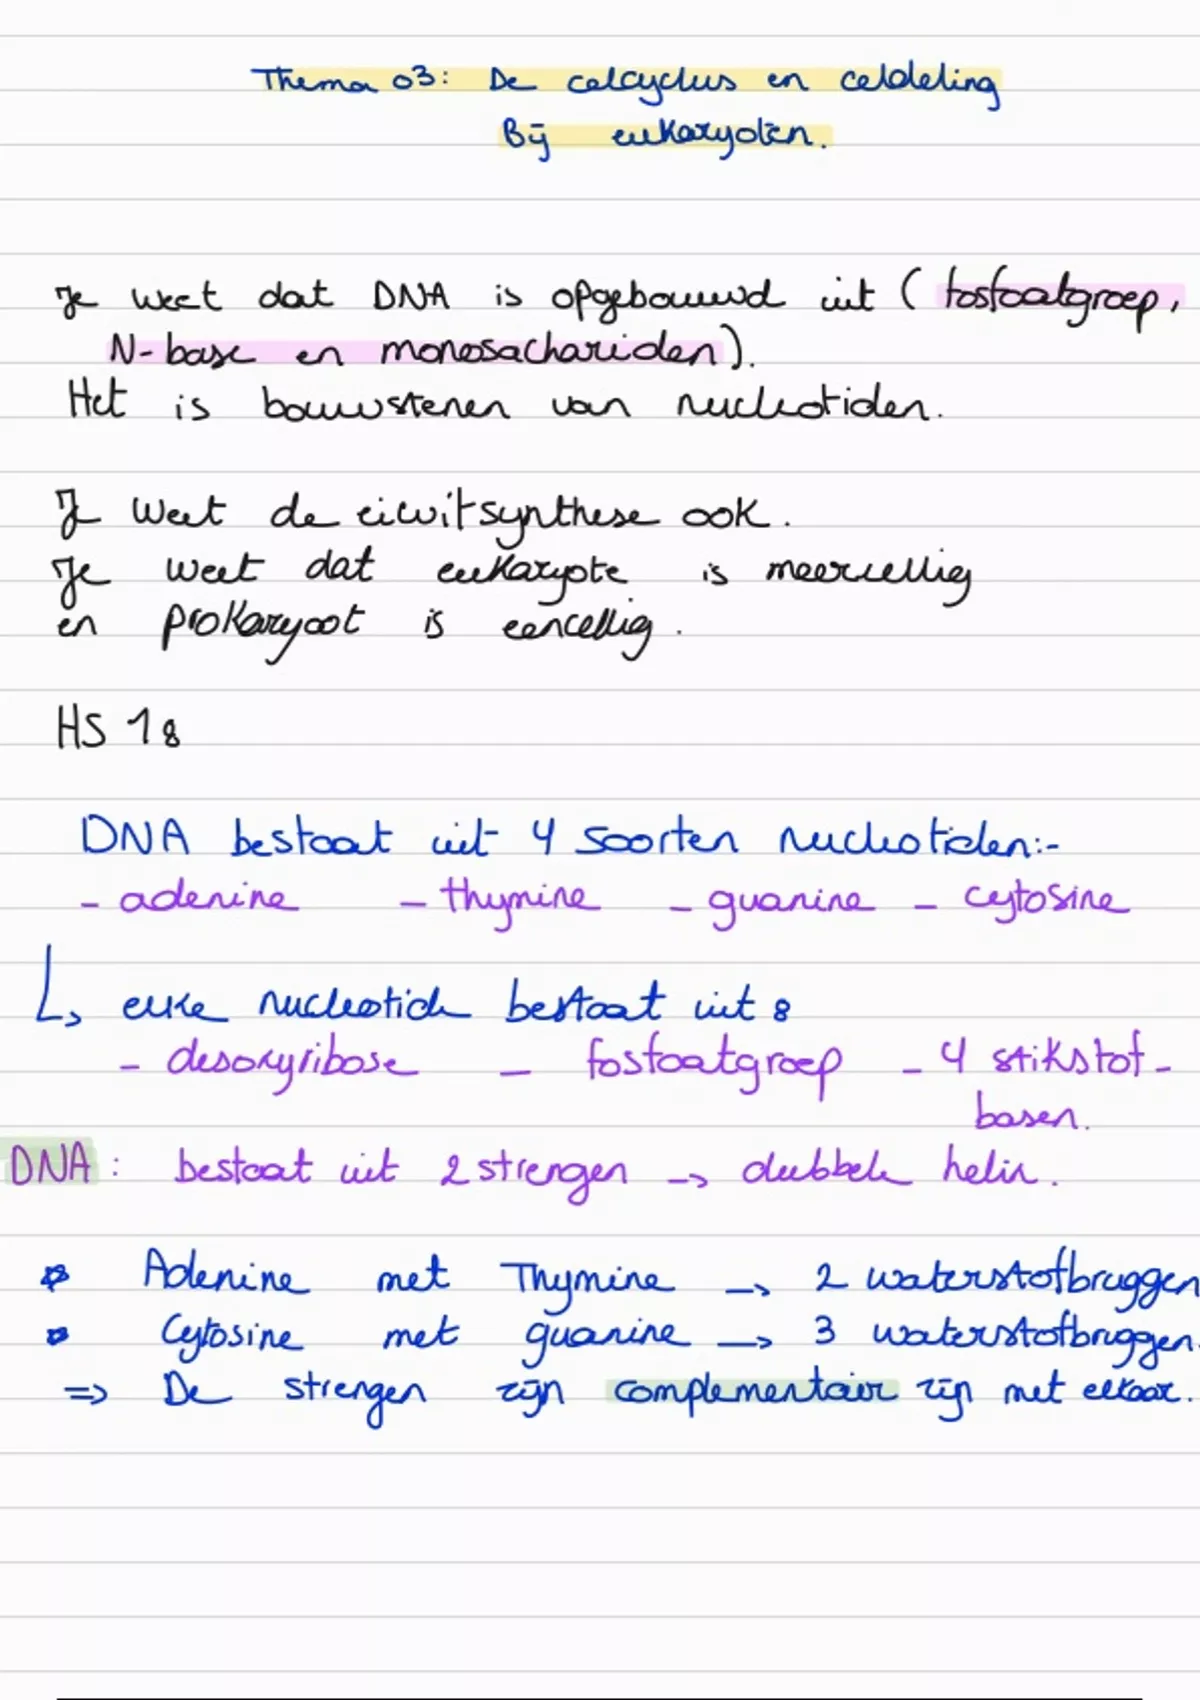 Thema 03: De celcyclus en celdeling
Bij eukaryoten.
Je weet dat DNA is opgebouwd uit (fosfaatgroep,
N-base en monosachariden).
Het is bouwstenen van nucleotiden.
Je weet de eiwitsynthese ook.
Je weet dat eukaryote is meercellig
en prokaryoot is eencellig.
HS 18
DNA bestaat uit 4 soorten nucleotiden:-
- adenine - thymine - guanine - cytosine
↳ elke nucleotide bestaat uit 8
- desoxyribose - fosfaatgroep - 4 stikstof-
basen.
DNA: bestaat uit 2 strengen -> dubbele helix.
* Adenine met Thymine -> 2 waterstofbruggen
* Cytosine met guanine -> 3 waterstofbruggen.
=> De strengen zijn complementair zijn met elkaar.